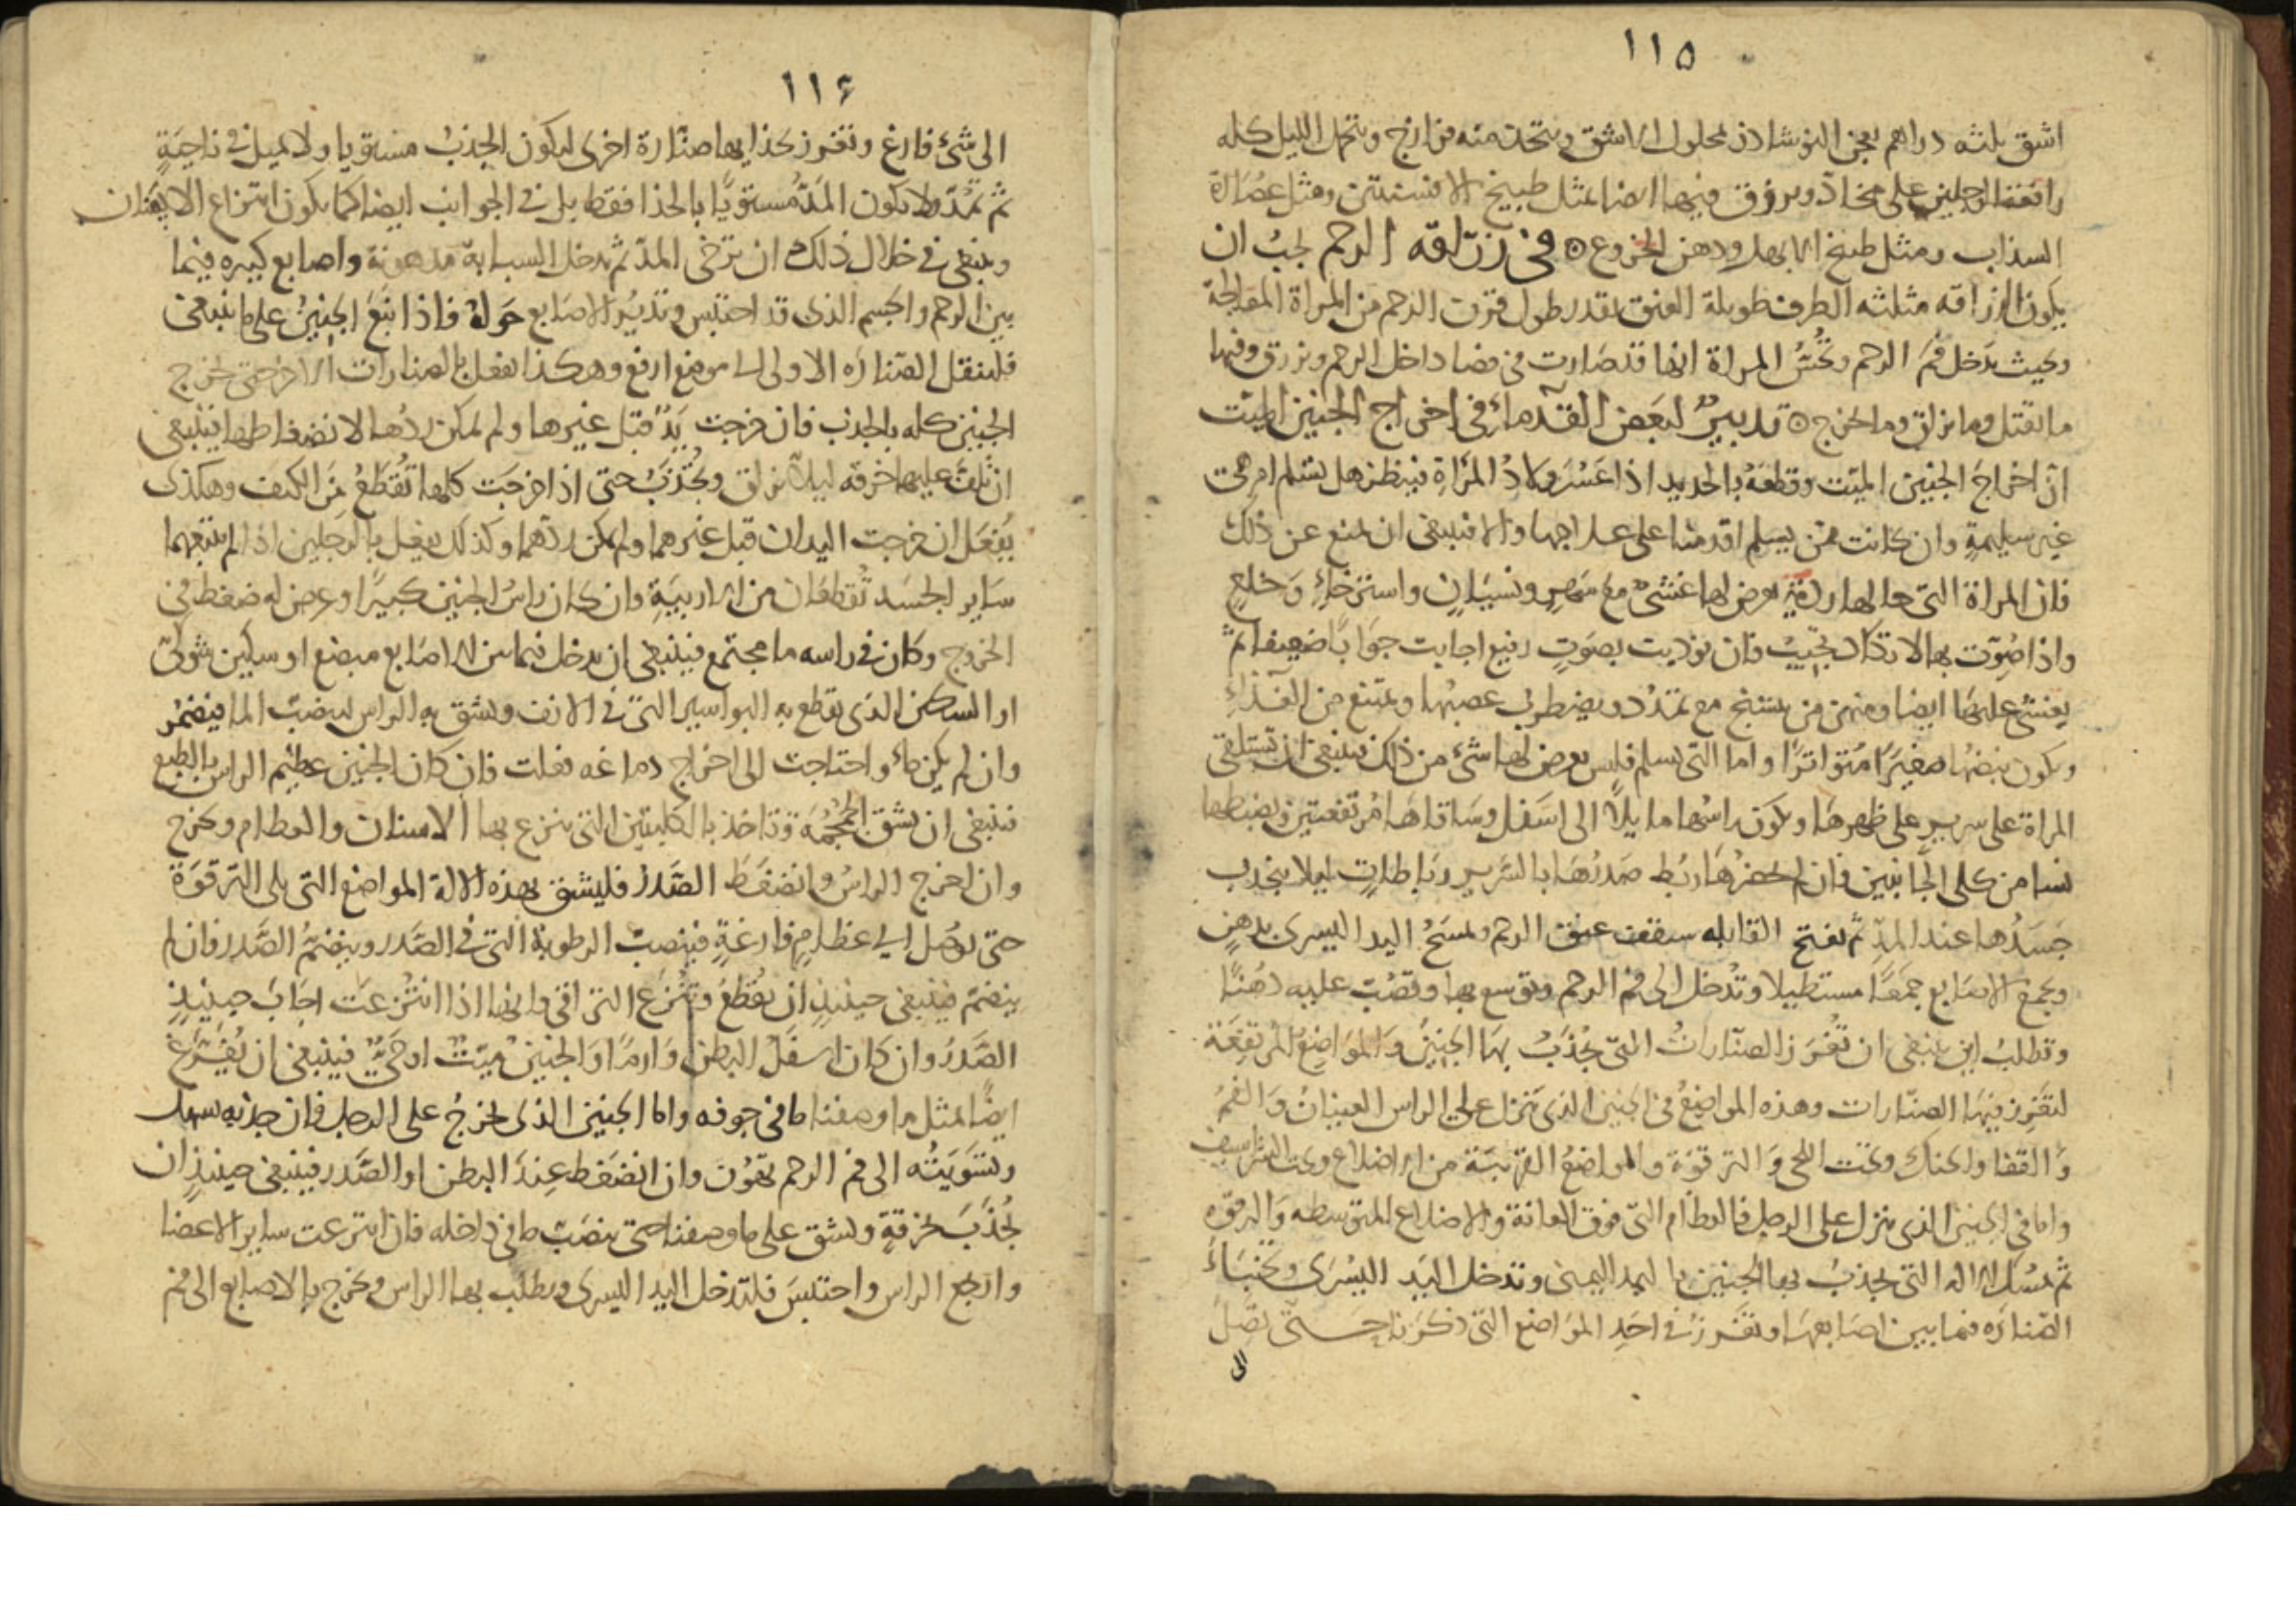 ١١٥
اشق ثلثه دراهم يعجن النوشاذر بمحلول الاشق ويتخذ منه فرازج ويتحمل الليل كله
رافعة الرجلين على مخاد ويزرق فيها ايضا مثل طبيخ الافسنتين ومثل عصارة
السذاب ومثل طبيخ الابهل ودهن الخروع ۞ في زراقه الرحم يجب ان
يكون الزراقه مثلثه الطرف طويلة العنق بقدر طول قرن الرحم من المراة المعالجة
وبحيث يدخل فم الرحم وتحس المراة انها قد صارت في فضا داخل الرحم ويزرق فيها
ما يقتل وما يزلق وما يخرج ۞ تدبير لبعض القدماء في اخراج الجنين الميت
ان اخراج الجنين الميت وقطعه بالحديد اذا عسر ولاد المراة فينظر هل تسلم ام هى
غير سليمة وان كانت ممن يسلم اقدمنا على علاجها والا فينبغى ان يمنع عن ذلك
فان المراة التى حالها ردية يعرض لها غشى مع سهر ونسيان واسترخاء وخلع
واذا صوت بها لا تكاد تجيب فان نوديت بصوت رفيع اجابت جوابا ضعيفا ثم
يغشى عليها ايضا ومنهن من يتشنج مع تمدد ويضطرب عصبها وتمتنع من الغذاء
ويكون نبضها صغيرا متواترا واما التى تسلم فليس يعرض لها شئ من ذلك فينبغى ان تستلقى
المراة على سرير على ظهرها ويكون راسها مايلا الى اسفل وساقاها مرتفعتين ويضبطها
نسا من كلى الجانبين فان لم يحضرها ربط صدرها بالسرير رباطات ليلا ينجذب
جسدها عند المد ثم يفتح القابله سقف عنق الرحم وتمسح اليد اليسرى بدهن
وتجمع الاصابع جمعا مستطيلا وتدخل الى فم الرحم وتوسع بها وتصب عليه دهنا
وتطلب اين ينبغى ان تغرز الصنارات التى يجذب بها الجنين والمواضع المرتفعة
لتغرز فيها الصنارات وهذه المواضع في الجنين الذى ينزل على الراس العينان والفم
والقفا والحنك وتحت اللحى والترقوة والمواضع القريبة من الاضلاع وتحت الشراسيف
واما في الجنين الذى ينزل على الرجل فالعظام التى فوق العانة والاضلاع المتوسطه والترقوه
ثم تمسك الاله التى يجذب بها الجنين با ليد اليمنى وتدخل اليد اليسرى وتخبا
الصناره فيما بين اصابعها وتغرز في احد المواضع التى ذكرنا حتى تصل
الى
١١٦
الى شئ فارغ وتغرز بحذايها صنارة اخرى ليكون الجذب مستويا ولا يميل في ناحية
ثم تمد ولا يكون المد مستويا بالحذا فقط بل في الجوانب ايضا كما يكون انتزاع الاسنان
وينبغى في خلال ذلك ان يرخى المد ثم تدخل السبابة مدهونة واصابع كبيره فيما
بين الرحم والجسم الذى قد احتبس وتدير الاصابع حوله فاذا اتبع الجنين على ما ينبغى
فلينقل الصناره الاولى الى موضع ارفع وهكذا يفعل بالصنارات الاخر حتى يخرج
الجنين كله بالجذب فان خرجت يد قبل غيرها ولم يمكن ردها لانضغاطها فينبغى
ان تلف عليها خرقه ليلا تزلق وتجذب حتى اذا خرجت كلها تقطع من الكتف وهكذى
يفعل ان خرجت اليدان قبل غيرهما ولم يمكن ردهما وكذلك يفعل بالرجلين اذا لم يتبعهما
ساير الجسد تقطعان من الاربية وان كان راس الجنين كبيرا وعرض له ضغط في
الخروج وكان في راسه ما مجتمع فينبغى ان يدخل فيما بين الاصابع مبضع او سكين شوكى
او السكين الذى يقطع به البواسير التى في الانف ويشق به الراس لينصب الما فيضمر
وان لم يكن ماء واحتاجت الى اخراج دماغه فعلت فان كان الجنين عظيم الراس بالطبع
فينبغى ان يشق الجمجمة وتاخذ بالكلبتين التى ينزع بها الاسنان والعظام ويخرج
وان اخرج الراس وانضغط الصدر فليشق بهذه الالة المواضع التى يلى الترقوة
حتى يوصل الى عظام فارغة فينصب الرطوبة التى في الصدر وينضم الصدر فان لم
ينضم فينبغى حينيذ ان يقطع وتنزع التراقى فانها اذا انتزعت اجاب حينيذ
الصدر وان كان اسفل البطن وارما والجنين ميت او حى فينبغى ان يفرغ
ايضا لمثل ما وصفنا ما في جوفه واما الجنين الذى يخرج على الرجل فان جذبه سهل
وتسويته الى فم الرحم يهون وان انضغط عند البطن او الصدر فينبغى حينيذ ان
يجذب بخرقة ويشق على ما وصفنا حتى ينصب ما في داخله فان انتزعت ساير الاعضا
وارتجع الراس واحتبس فلتدخل اليد اليسرى ويطلب بها الراس ويخرج بالاصابع الى فم